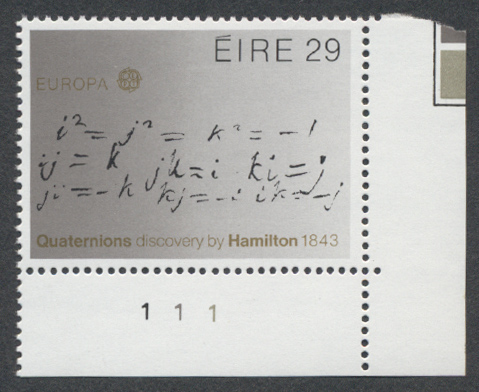 ÉIRE 29
EUROPA
i² = j² = k² = -1
ij = k jk = i ki = j
ji = -k kj = -i ik = -j
Quaternions discovery by Hamilton 1843
1 1 1